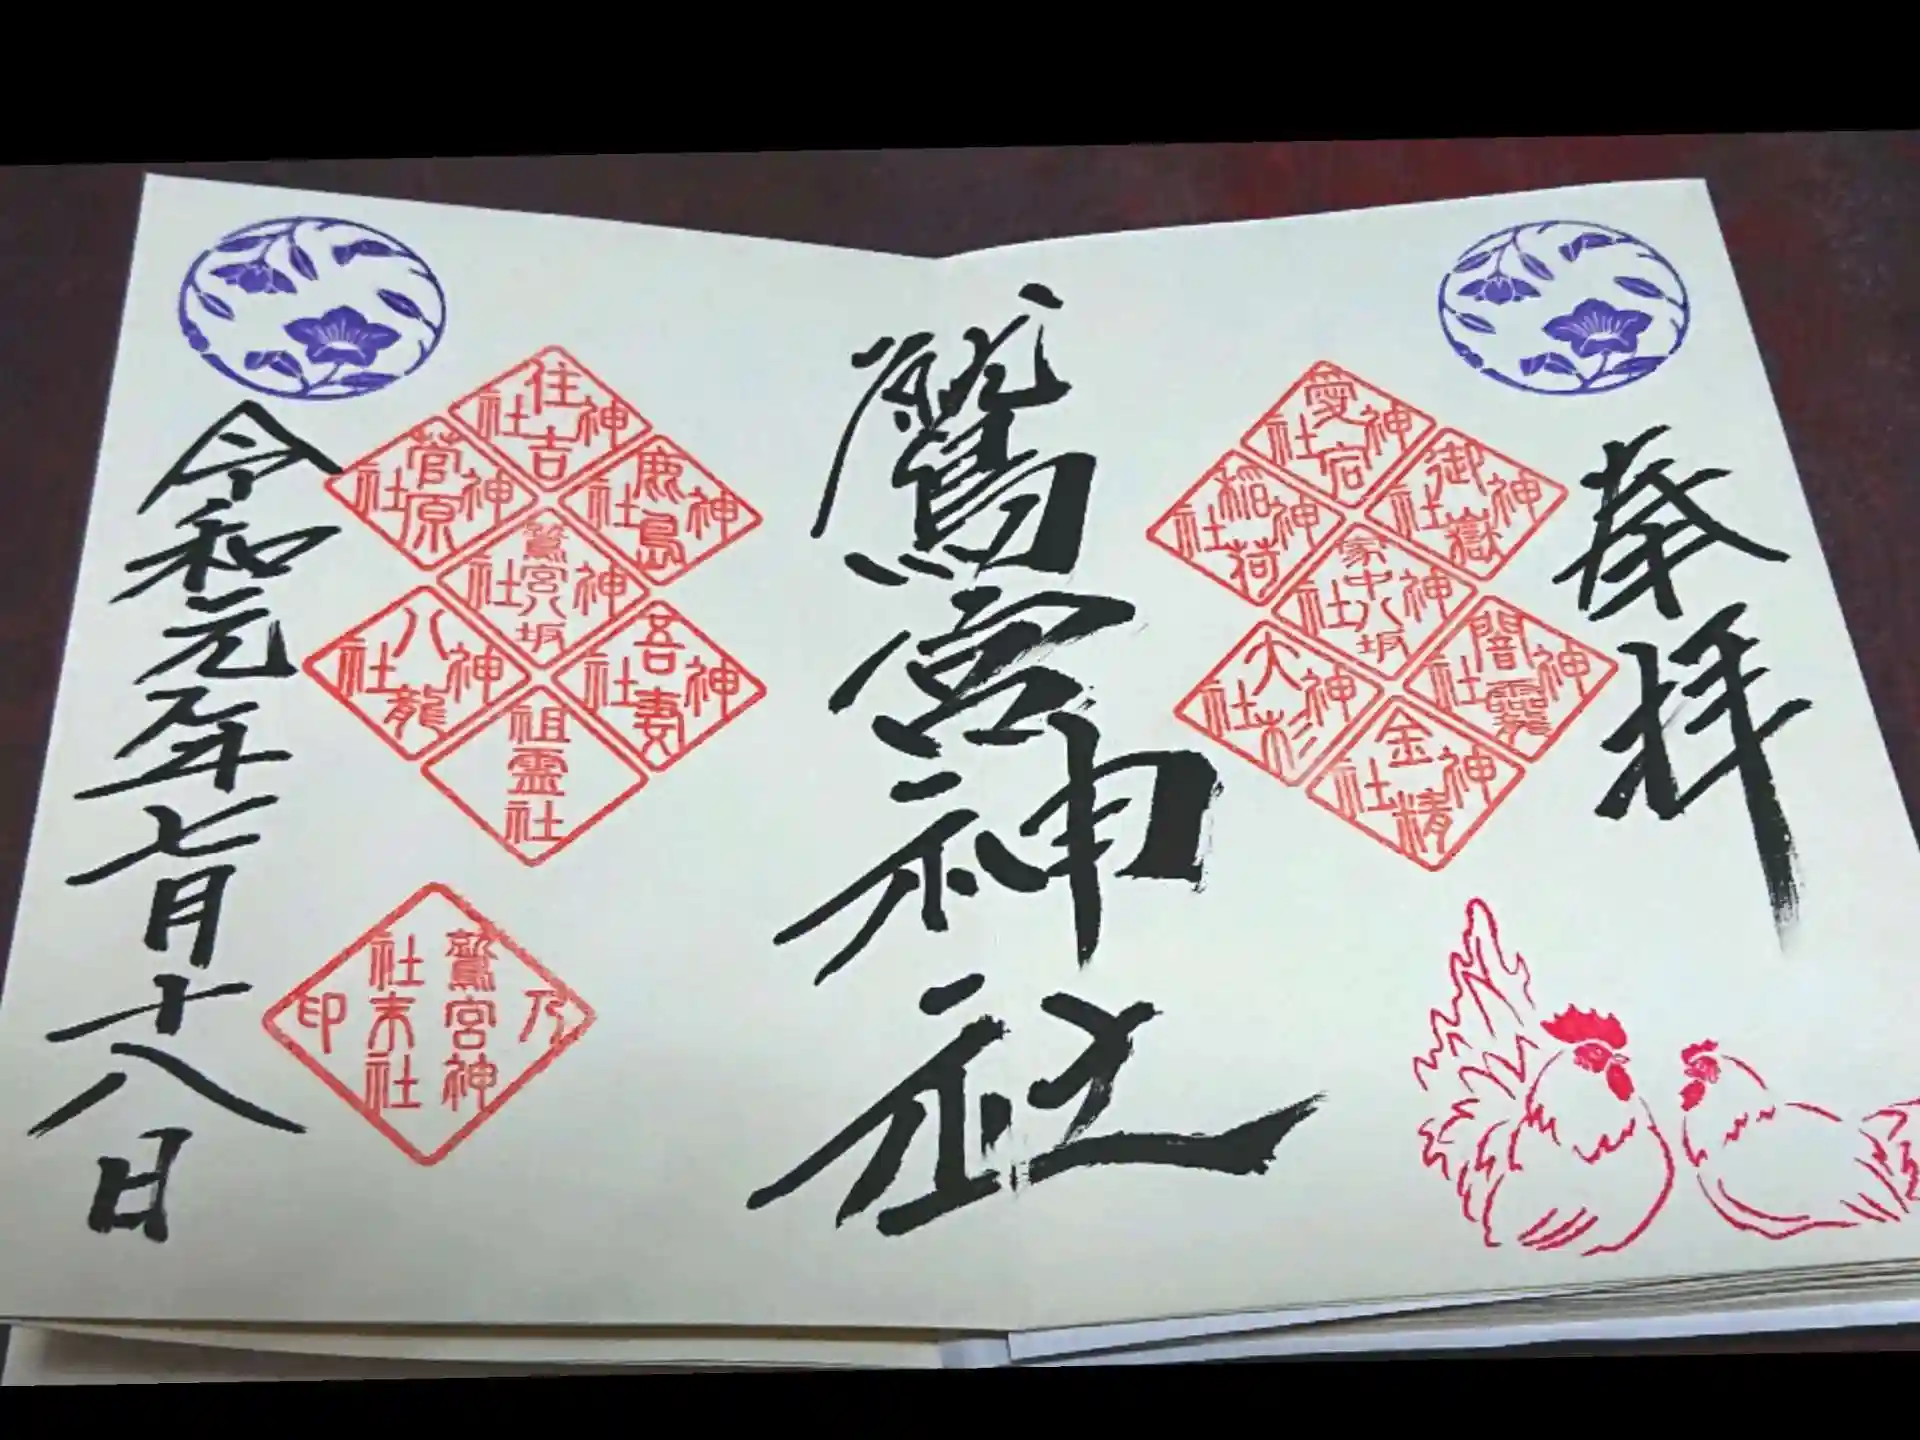 奉拝
愛宕神社
御嶽神社
稲荷神社
家中八坂神社
闇龗神社
大杉神社
金精神社
鷲宮神社
住吉神社
鹿島神社
菅原神社
鷲宮八坂神社
吾妻神社
八龍神社
祖霊社
鷲宮神社末社乃印
令和元年七月十八日